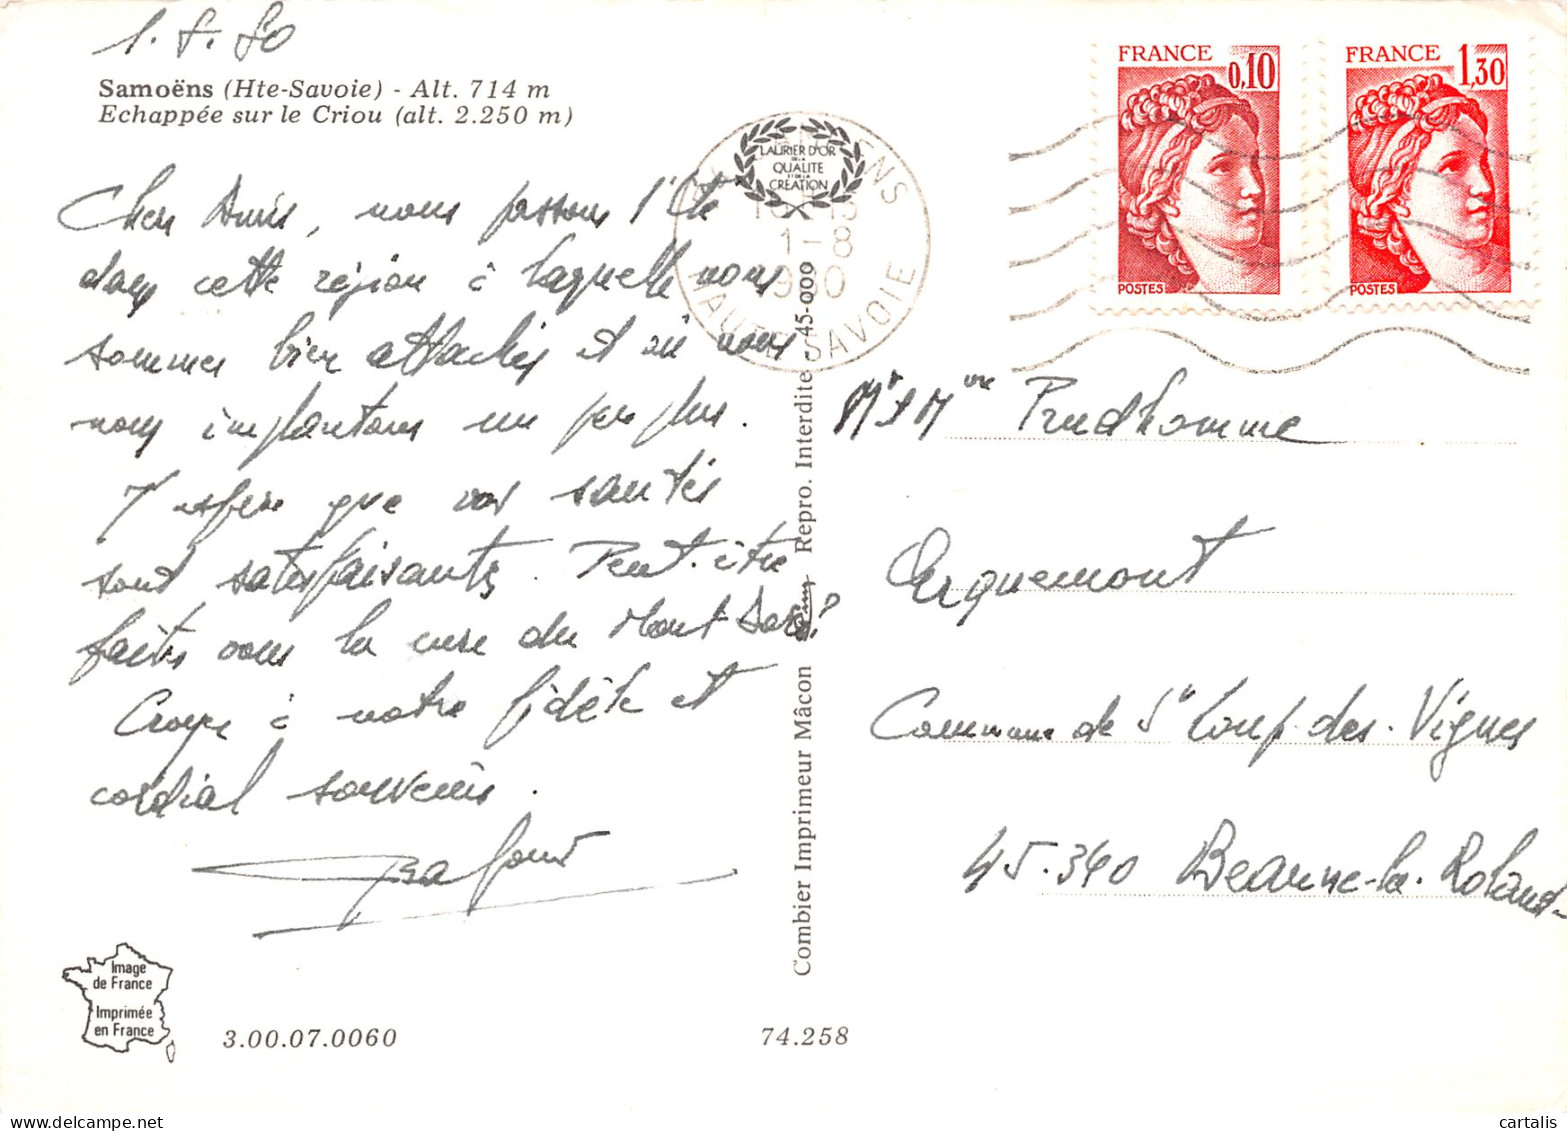 1.8.80
Samoëns (Hte-Savoie) - Alt. 714 m
Echappée sur le Criou (alt. 2.250 m)
Chers Amis, nous passons l'Eté
dans cette région à laquelle nous
sommes bien attachés et où nous
nous implantons un peu plus.
J'espère que vos santés
sont satisfaisantes. Peut-être
faites vous la cure du Mont Dore?
Croyez à notre fidèle et
cordial souvenir.
Image
de France
Imprimée
en France
3.00.07.0060
74.258
Combier Imprimeur Mâcon
Repro. Interdite - 45-000
LAURIER D'OR
DE LA
QUALITE
ET DE LA
CREATION
ENS
1-8
1980
HAUTE SAVOIE
FRANCE
0,10
POSTES
FRANCE
1,30
POSTES
Mr et Mme Prudhomme
Orquemont
Commune de St Loup-des-Vignes
45.340 Beaune-la-Rolande
cartalis